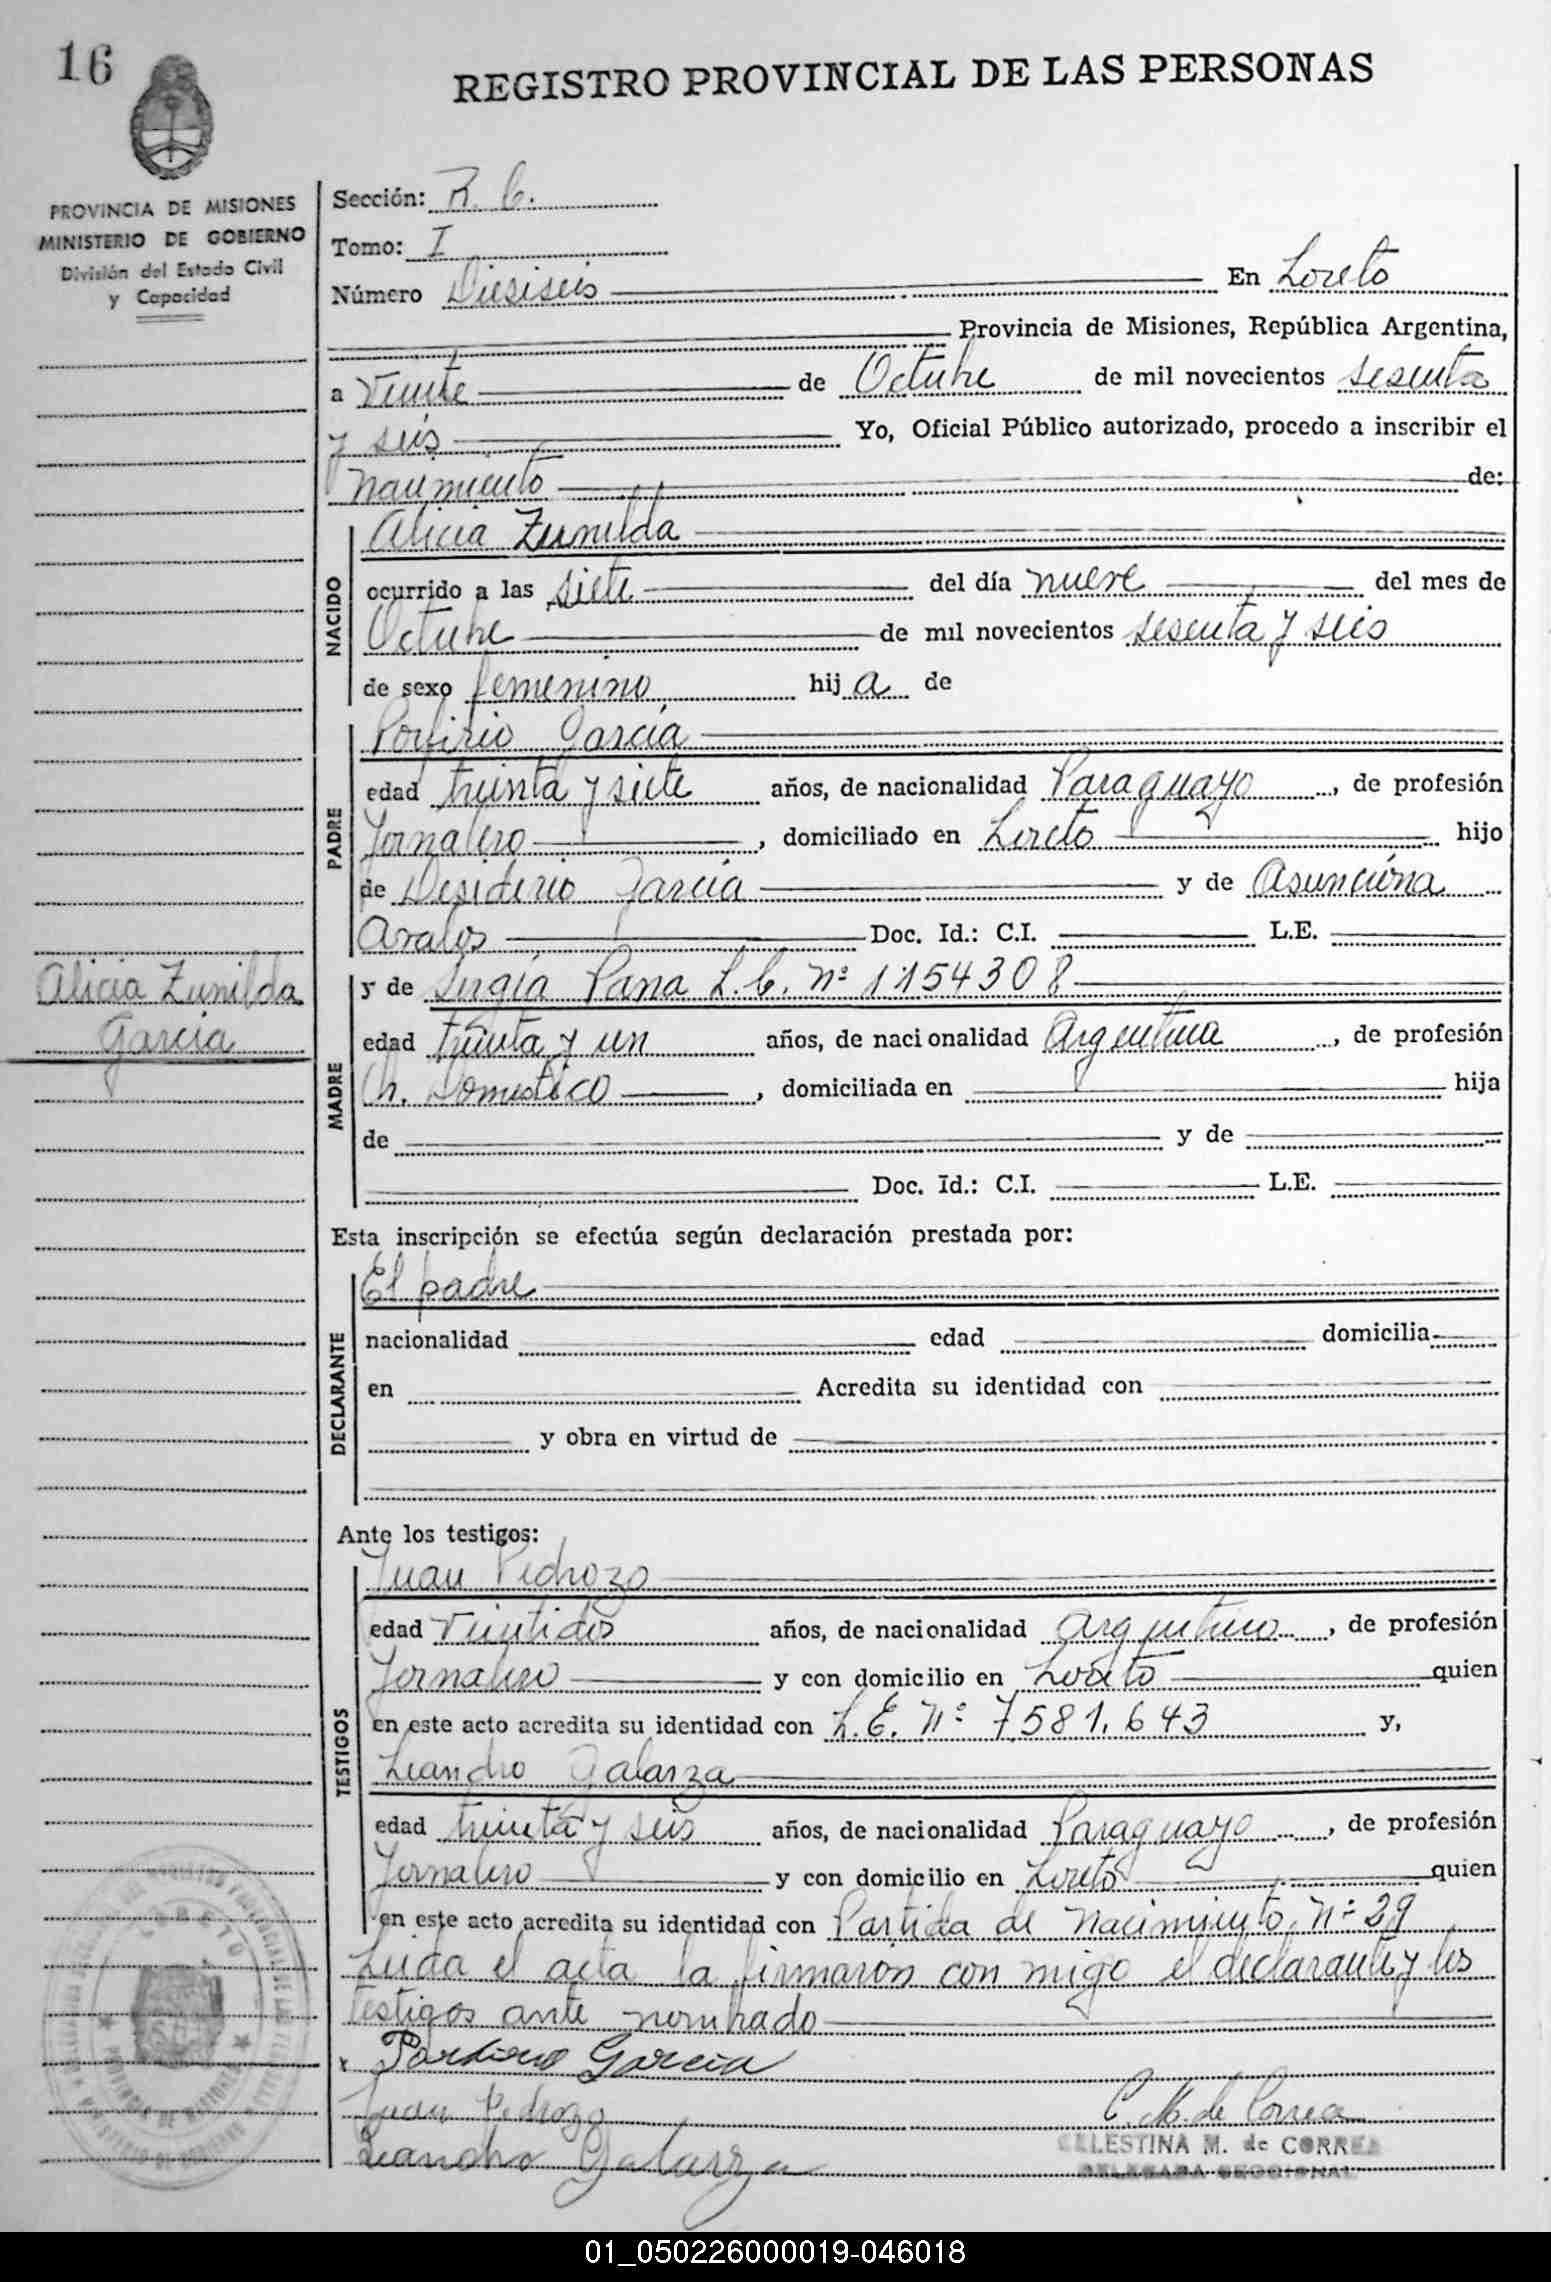 16
REGISTRO PROVINCIAL DE LAS PERSONAS
PROVINCIA DE MISIONES
MINISTERIO DE GOBIERNO
División del Estado Civil
y Capacidad
Sección: R. C.
Tomo: I
Número Diesiseis En Loreto
Provincia de Misiones, República Argentina,
a veinte de Octubre de mil novecientos sesenta
y seis Yo, Oficial Público autorizado, procedo a inscribir el
nacimiento de:
NACIDO
Alicia Zunilda
ocurrido a las siete del día nueve del mes de
Octubre de mil novecientos sesenta y seis
de sexo femenino hij a de
PADRE
Porfirio García
edad treinta y siete años, de nacionalidad Paraguayo, de profesión
Jornalero, domiciliado en Loreto hijo
de Desiderio García y de Asunciona
Avalos Doc. Id.: C.I. L.E.
Alicia Zunilda
García
MADRE
y de Sergia Pana L.C. Nº 1154308
edad treinta y un años, de nacionalidad Argentina, de profesión
Q. Domestico, domiciliada en hija
de y de
Doc. Id.: C.I. L.E.
Esta inscripción se efectúa según declaración prestada por:
DECLARANTE
El padre
nacionalidad edad domicilia
en Acredita su identidad con
y obra en virtud de
Ante los testigos:
TESTIGOS
Juan Pedrozo
edad veintidos años, de nacionalidad argentino, de profesión
Jornalero y con domicilio en Loreto quien
en este acto acredita su identidad con L.E. Nº 7.581.643 y,
Leandro Galarza
edad treinta y seis años, de nacionalidad Paraguayo, de profesión
Jornalero y con domicilio en Loreto quien
en este acto acredita su identidad con Partida de Nacimiento, Nº 29
Leida el acta la firmaron con migo el declarante y los
testigos ante nombrado
x Porfirio García
Juan Pedrozo
C. M. de Correa
CELESTINA M. de CORREA
DELEGADA SECCIONAL
Leandro Galarza
LORETO
PROVINCIA DE MISIONES
01_050226000019-046018